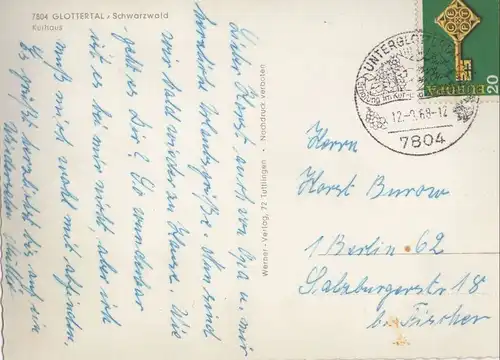 7804 GLOTTERTAL, Schwarzwald
Kurhaus
Lieber Horst, auch von Opa u. mir
herzliche Urlaubsgrüße. Nun sind
wir bald wieder zu Hause. Wie
geht es Dir? So wunderbar
ist es bei mir nicht, aber ich
muß mich wohl mit abfinden.
Es grüßt herzlichst bis auf ein
Wiedersehen
Werner-Verlag, 72 Tuttlingen · Nachdruck verboten
UNTERGLOTTERTAL
12.-9.68-12
7804
EUROPA
20
Herrn
Horst Burow
1 Berlin 62
Salzburgerstr 18
b. Fischer